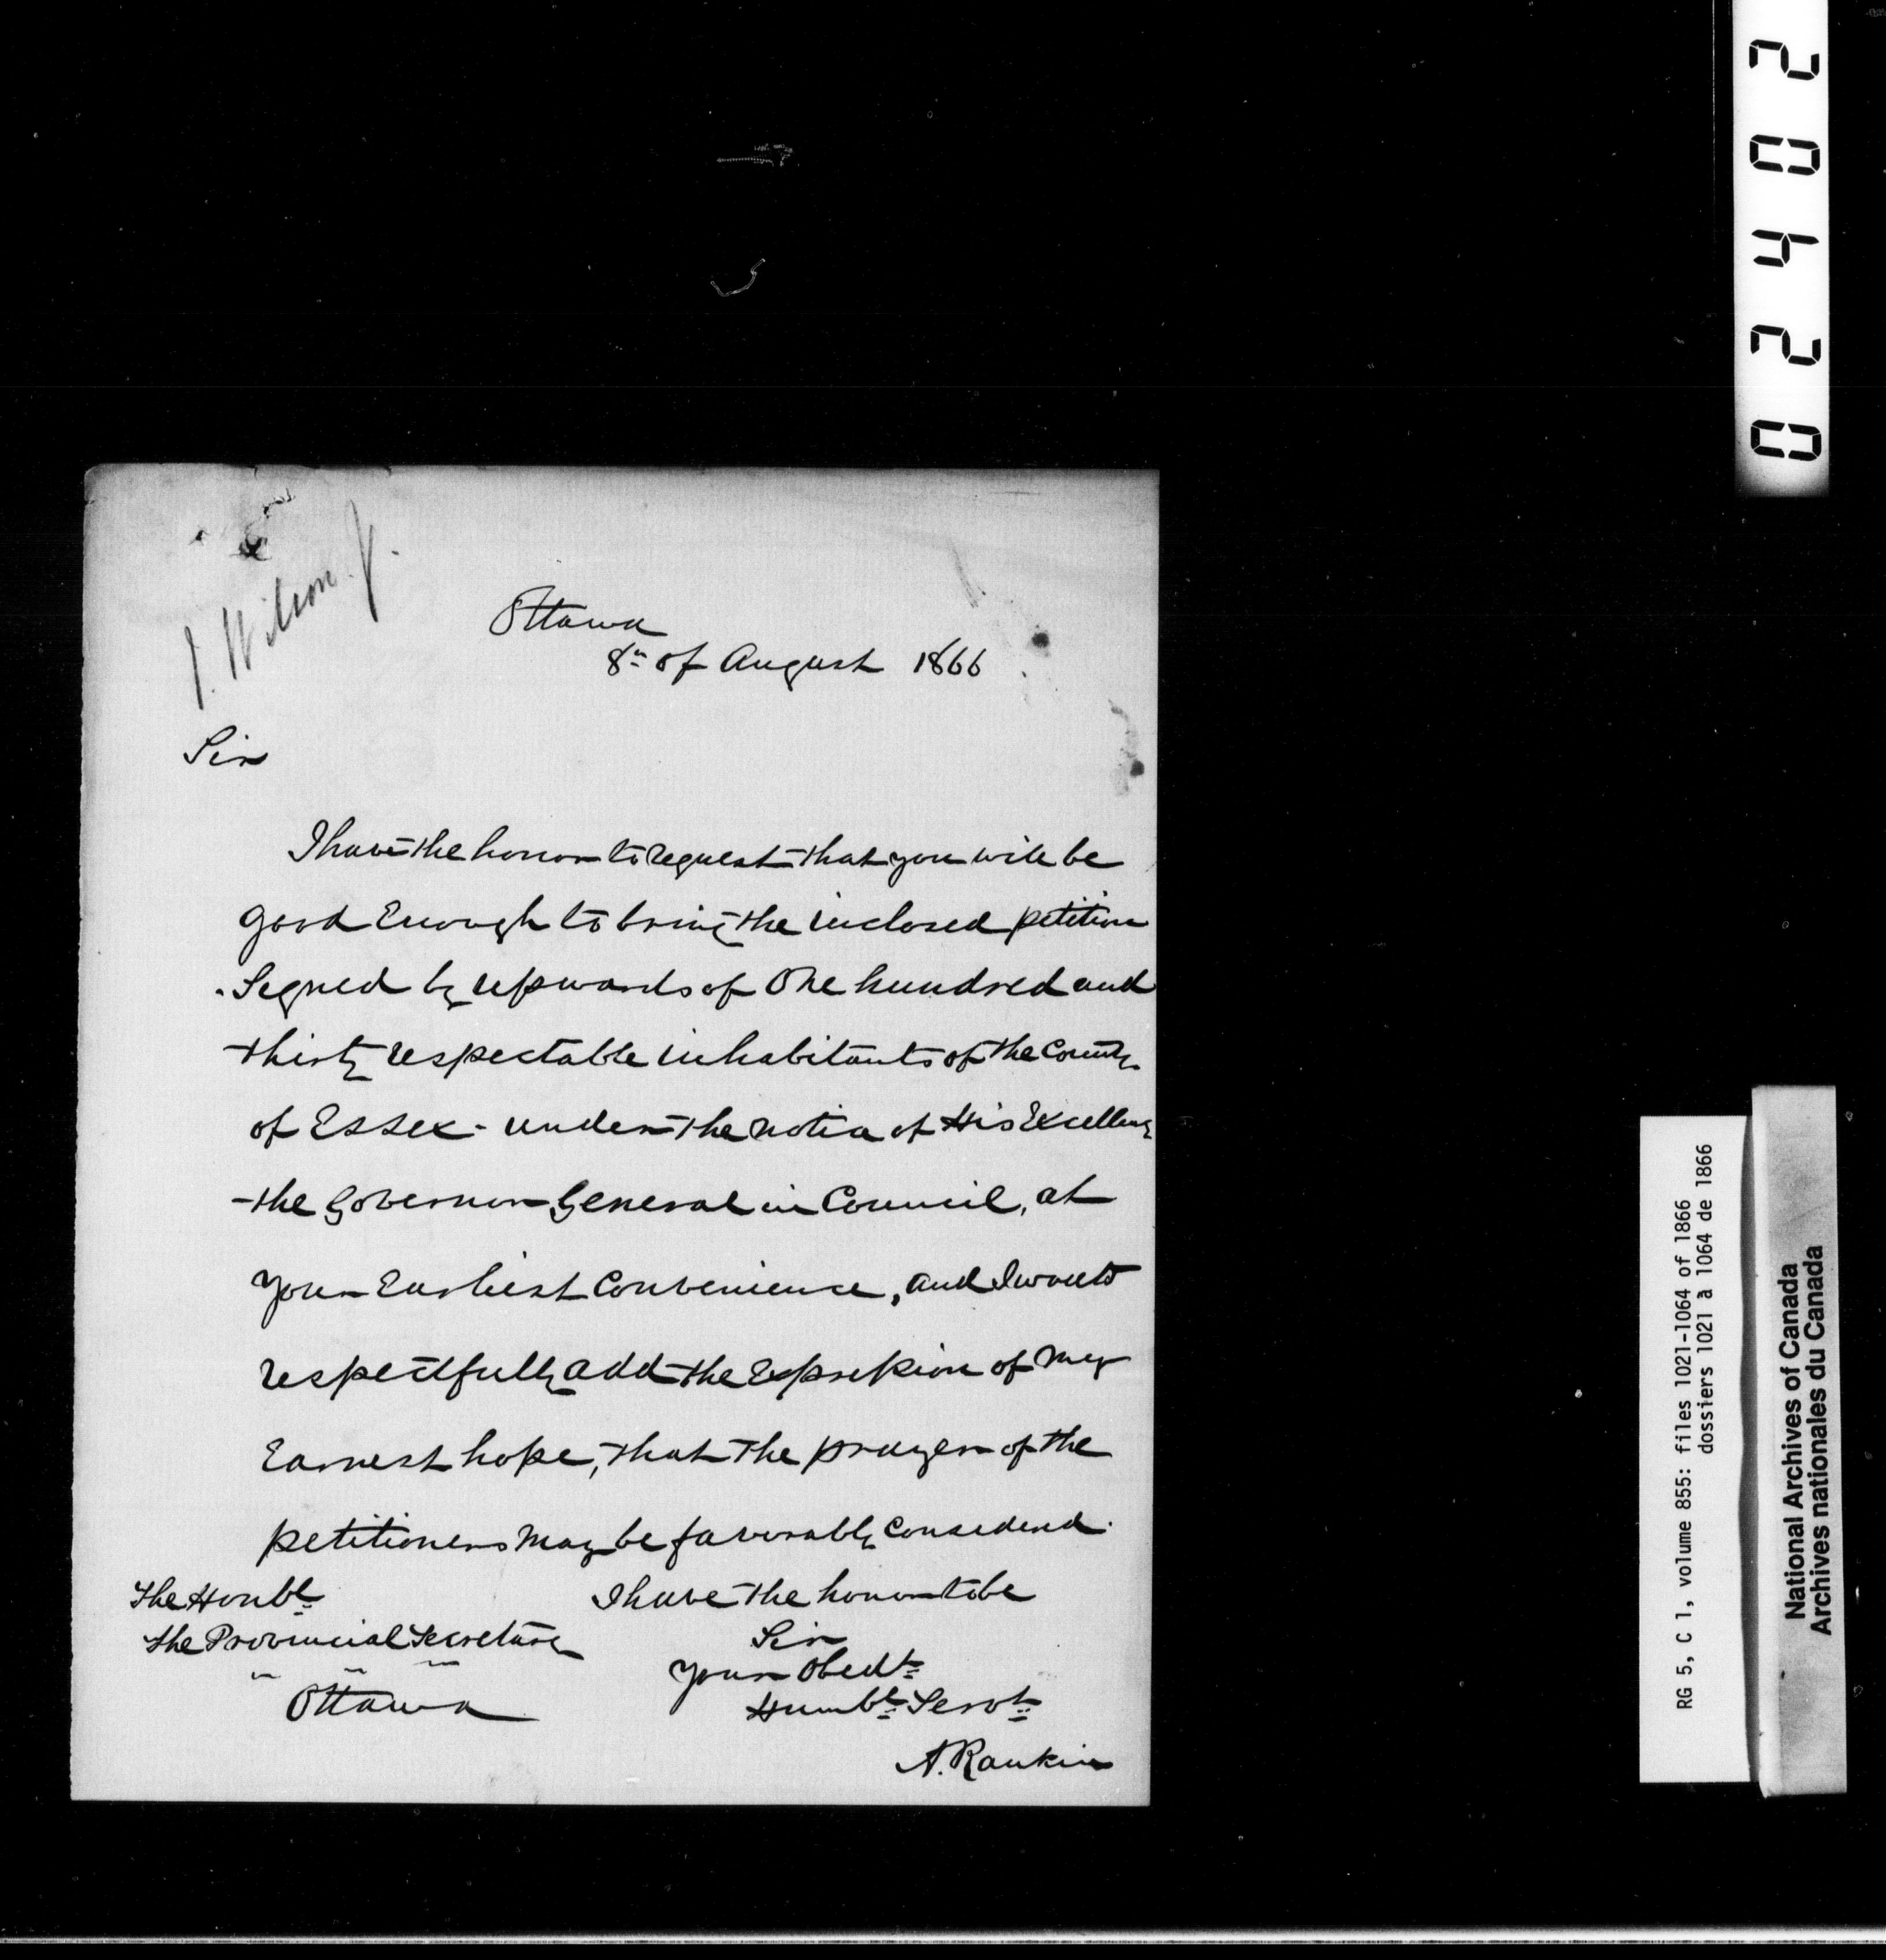 J. Wilson J.
Ottawa
8th of August 1866
Sir
I have the honor to request that you will be
good Enough to bring the inclosed petition
Signed by upwards of One hundred and
thirty respectable inhabitants of the County
of Essex - under the notice of His Excellency
the Governor General in Council, at
your Earliest Convenience, and I would
respectfully add the Expression of my
Earnest hope, that the prayer of the
petitioners may be favorably Considered.
The Honble
The Provincial Secretary
Ottawa
I have the honor to be
Sir
Your Obedt
Humble Servt
A. Rankin
02402
RG 5, C 1, volume 855: files 1021-1064 of 1866
dossiers 1021 à 1064 de 1866
National Archives of Canada
Archives nationales du Canada